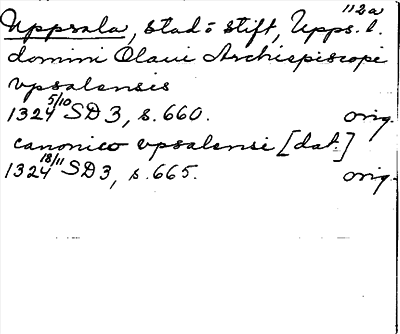 112a
Uppsala, stad o stift, Upps. l.
domini Olaui Archiepiscopi
vpsalensis
1324 5/10 SD 3, s. 660. orig.
canonico vpsalensi [dat.]
1324 18/11 SD 3, s. 665. orig.